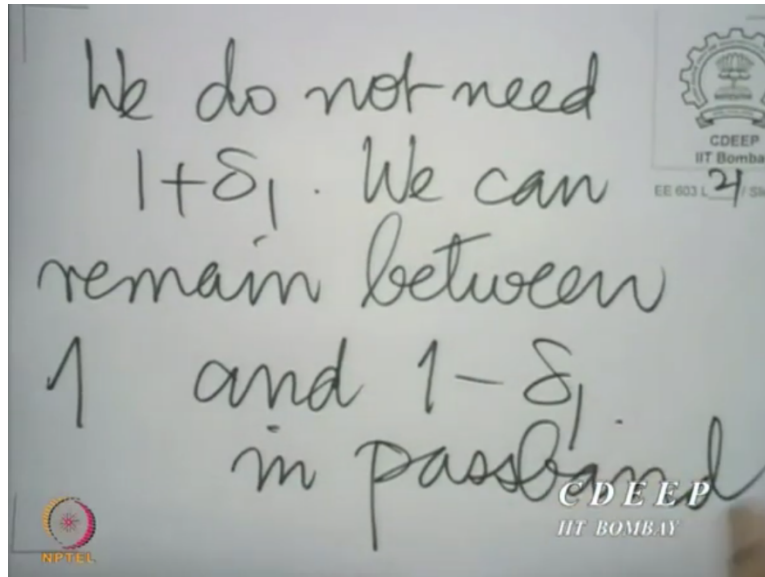 We do not need
1+δ₁. We can
remain between
1 and 1-δ₁
in passband
CDEEP
IIT Bomba
EE 603 L 21 / Sli
CDEEP
IIT BOMBAY
NPTEL